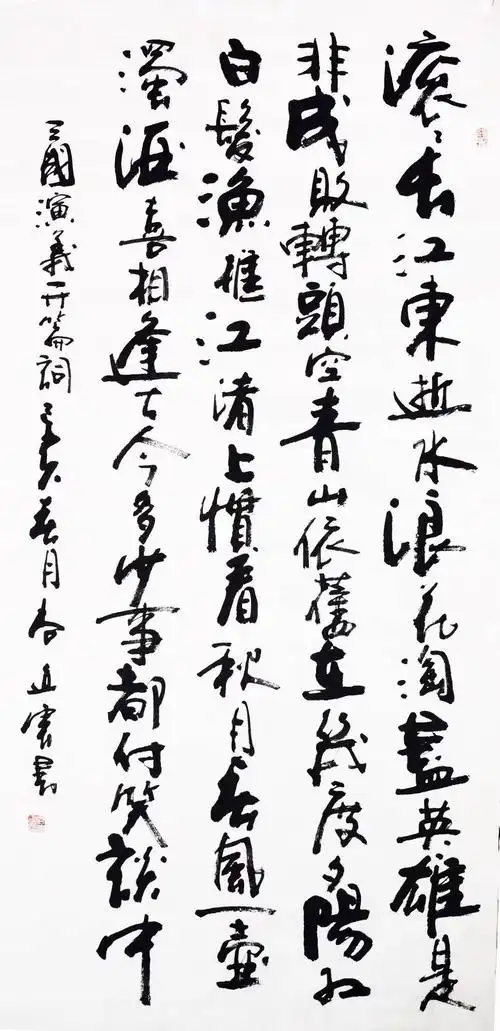 滾滾長江東逝水浪花淘盡英雄是
非成敗轉頭空青山依舊在幾度夕陽紅
白髮漁樵江渚上慣看秋月春風一壺
濁酒喜相逢古今多少事都付笑談中
三國演義开篇詞 亥春月 書